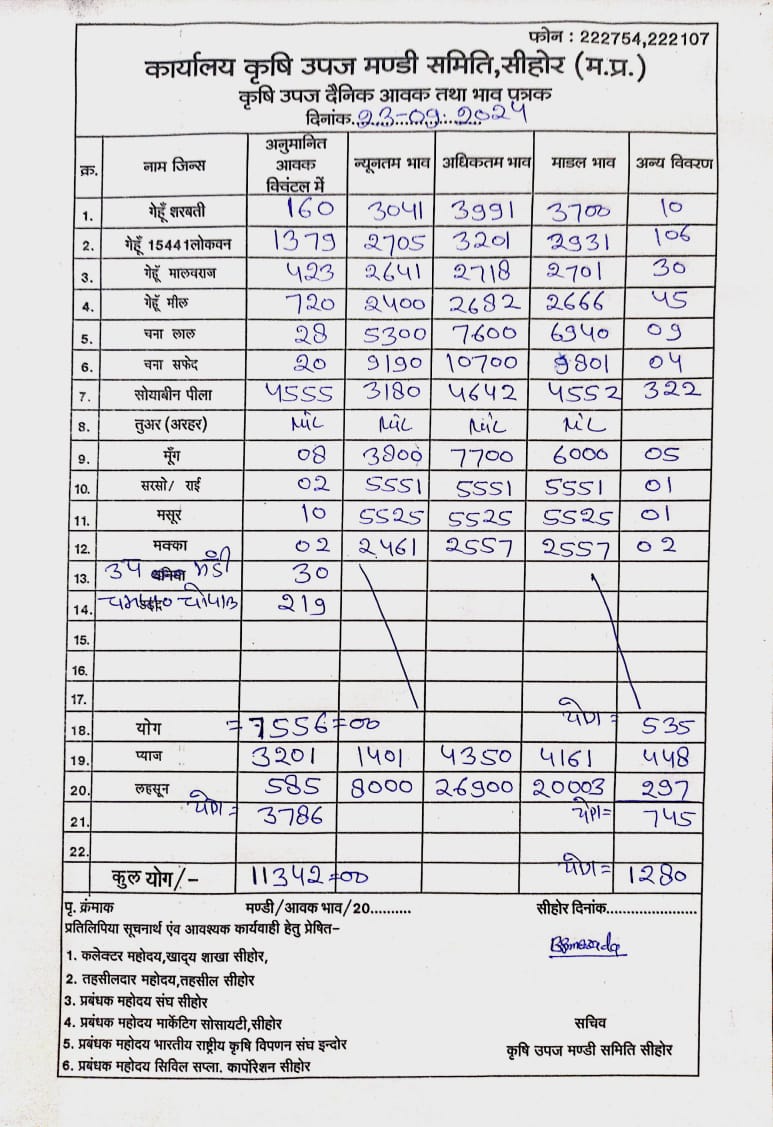 फोन : 222754,222107
कार्यालय कृषि उपज मण्डी समिति,सीहोर (म.प्र.)
कृषि उपज दैनिक आवक तथा भाव पत्रक
दिनांक..23-09-2024
क्र. नाम जिन्स अनुमानित आवक क्विंटल में न्यूनतम भाव अधिकतम भाव माडल भाव अन्य विवरण
1. गेहूँ शरबती 160 3041 3991 3700 10
2. गेहूँ 15441लोकवन 1379 2705 3201 2931 106
3. गेहूँ मालवराज 423 2641 2718 2701 30
4. गेहूँ मील 720 2400 2682 2666 45
5. चना लाल 28 5300 7600 6940 09
6. चना सफेद 20 9190 10700 9801 04
7. सोयाबीन पीला 4555 3180 4642 4552 322
8. तुअर (अरहर) NIL NIL NIL NIL
9. मूँग 08 3800 7700 6000 05
10. सरसो/ राई 02 5551 5551 5551 01
11. मसूर 10 5525 5525 5525 01
12. मक्का 02 2461 2557 2557 02
13. उप मंडी 30
14. 219
15.
16.
17.
18. योग =7556=00 योग= 535
19. प्याज 3201 1401 4350 4161 448
20. लहसून 585 8000 26900 20003 297
21. योग= 3786 योग= 745
22.
कुल योग/- 11342=00 योग= 1280
पृ. क्रंमाक मण्डी/आवक भाव/20.......... सीहोर दिनांक........................
प्रतिलिपिया सूचनार्थ एंव आवश्यक कार्यवाही हेतु प्रेषित–
1. कलेक्टर महोदय,खाद्य शाखा सीहोर,
2. तहसीलदार महोदय,तहसील सीहोर
3. प्रबंधक महोदय संघ सीहोर
4. प्रबंधक महोदय मार्केटिग सोसायटी,सीहोर सचिव
5. प्रबंधक महोदय भारतीय राष्ट्रीय कृषि विपणन संघ इन्दोर कृषि उपज मण्डी समिति सीहोर
6. प्रबंधक महोदय सिविल सप्ला. कार्पोरेशन सीहोर